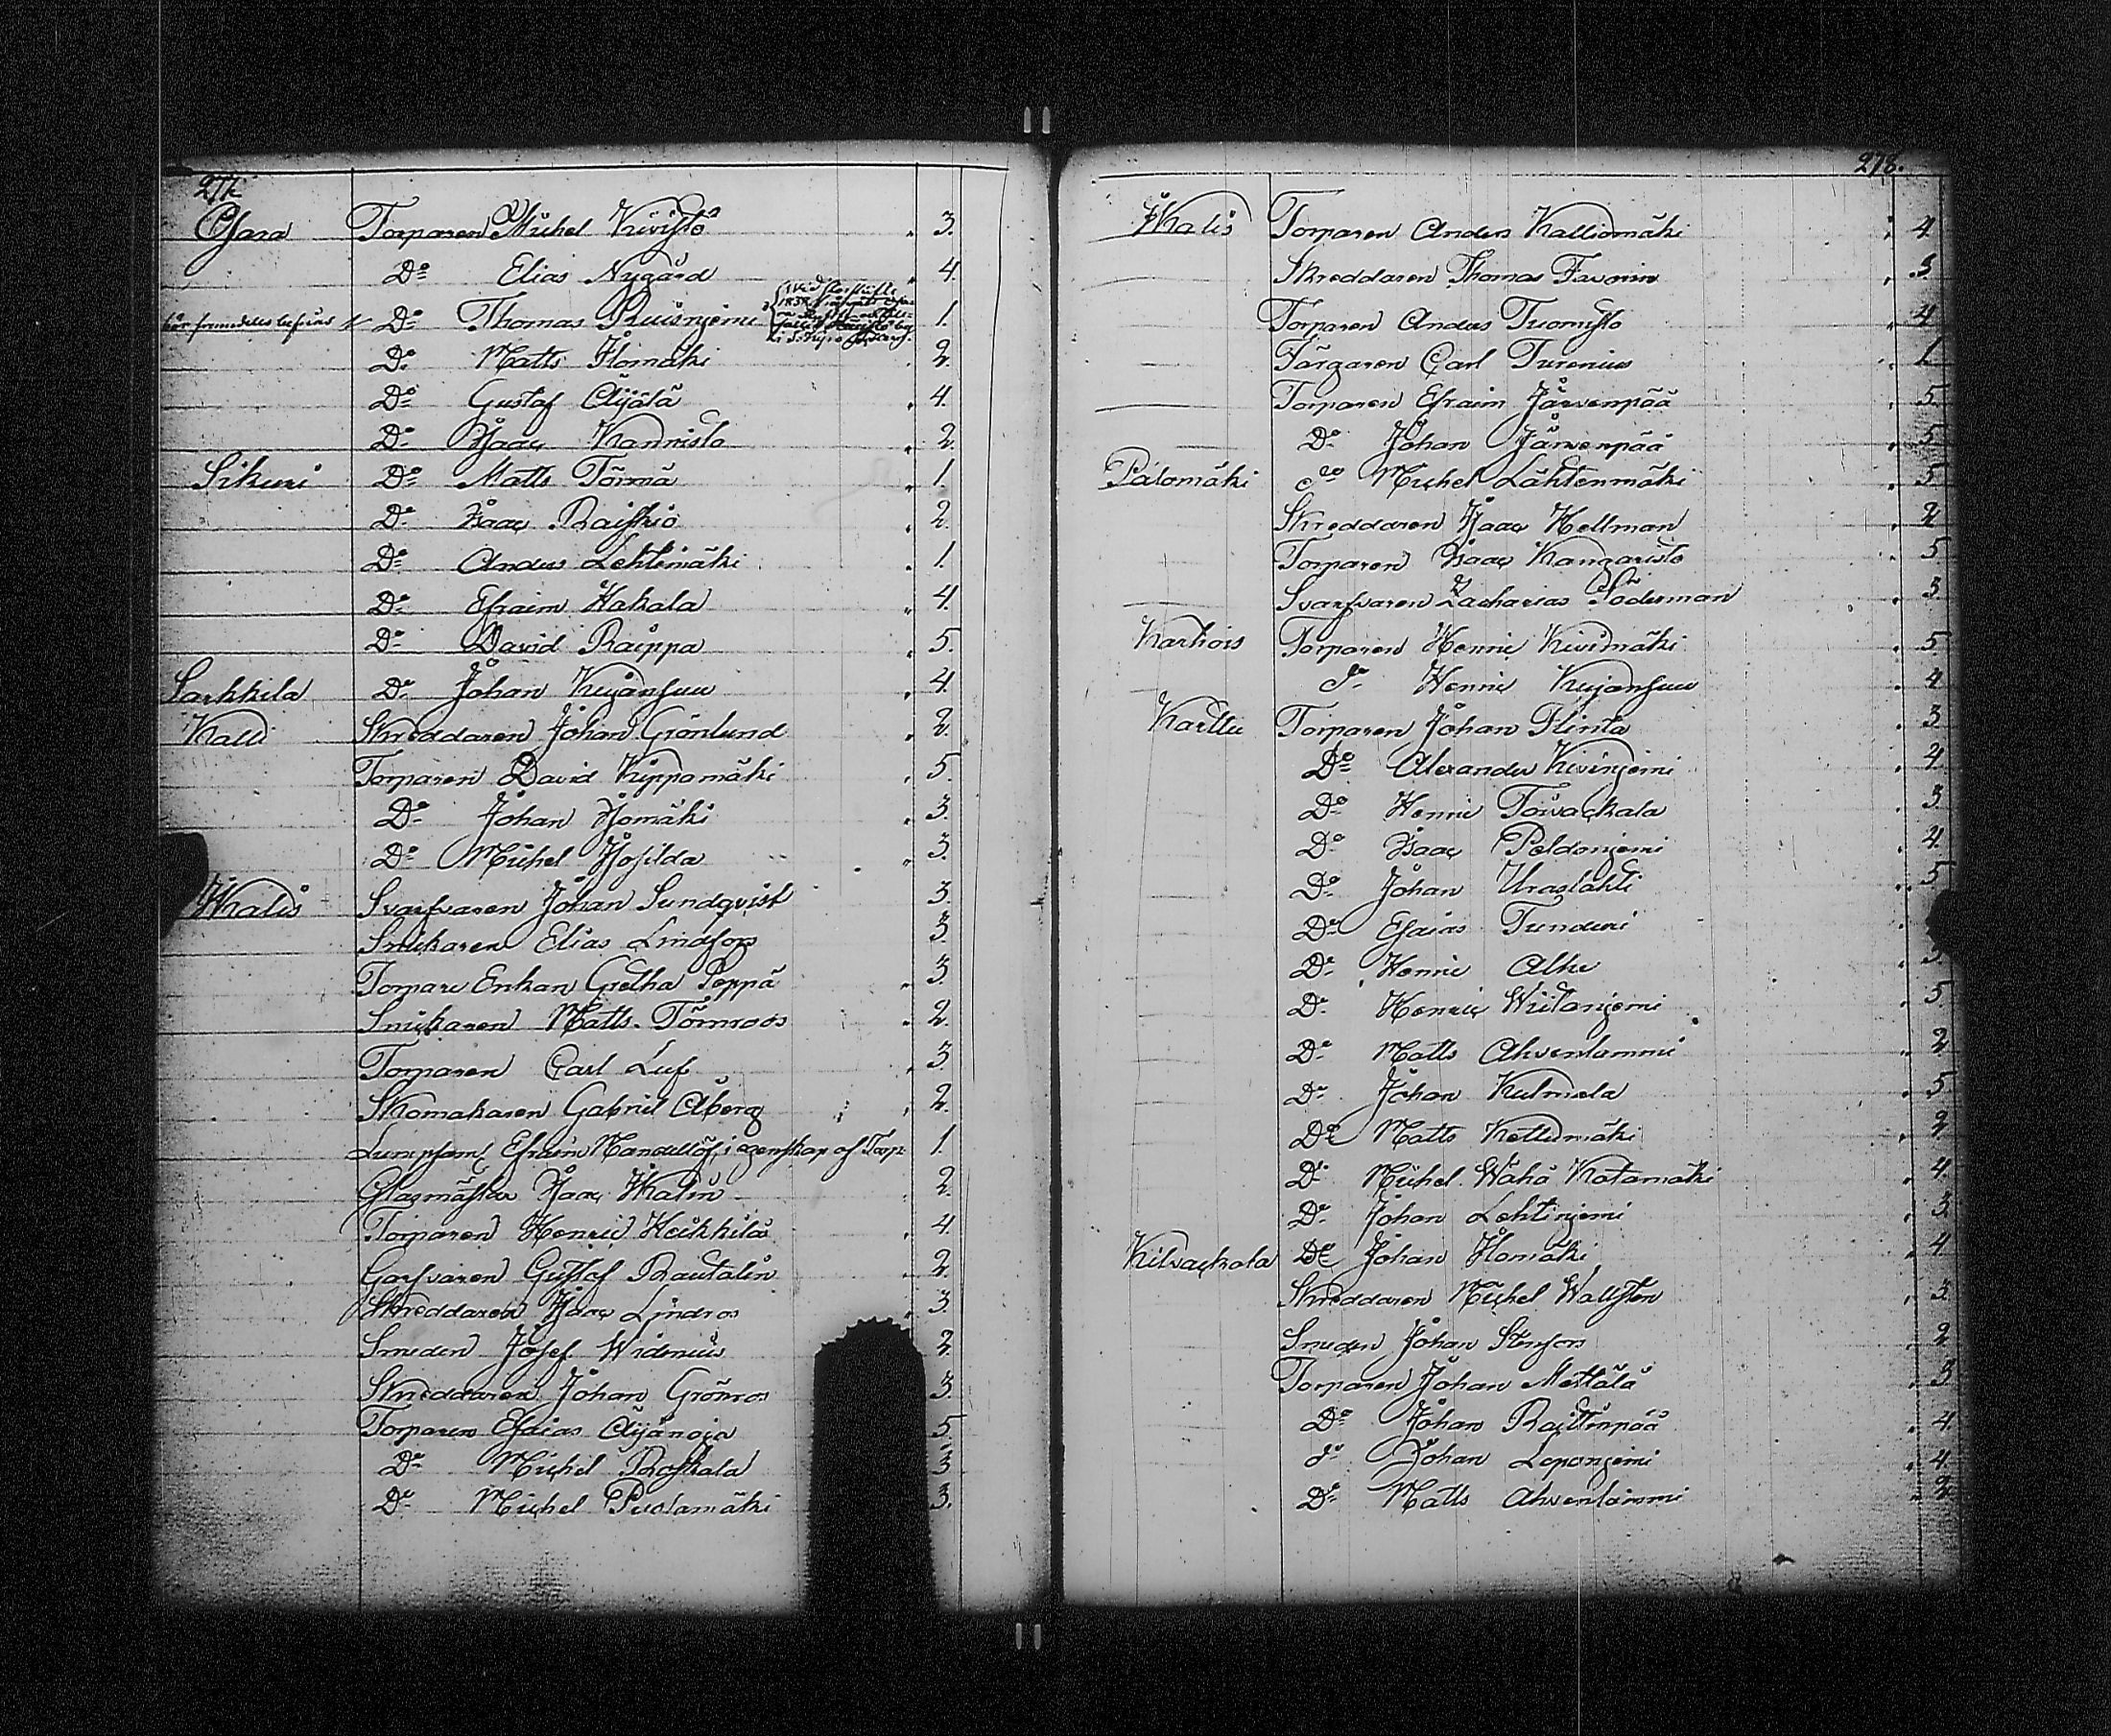 277.
Osara Torparen Michel Kivistö " 3.
Do Elias Nygård " 4.
bör framdeles befrias Do Thomas Ruisniemi 1.
Do Matts Ilomäki 2.
Do Gustaf Äijälä " 4.
Do Isaac Kannisto " 2
Sikuri Do Matts Törmä " 1.
Do Isaac Raiskio " 2.
Do Anders Lehtimäki " 1.
Do Efraim Hakala " 4.
Do David Raippa " 5.
Sarkkila Do Johan Kujansuu " 4.
Kalli Skreddaren Johan Grönlund " 2.
Torparen David Kippomäki " 5.
Do Johan Isomäki " 3.
Do Michel Isosilda " 3.
Ikalis Svarfvaren Johan Sundqvist 3.
Snikaren Elias Lindfors 3.
Torpare Enkan Gretha Seppä " 3.
Snikaren Matts Törnroos " 2.
Torparen Carl Luf " 3.
Skomakaren Gabriel Åberg " 2.
Efraim Mandellöf i egenskap af Torp 1.
Glasmästar Isaac Ikalin 2.
Torparen Henric Heikkilä " 4.
Garfvaren Gustaf Rautalin " 2.
Skreddaren Isaac Lindros " 3.
Smeden Josef Widenius 2.
Skreddaren Johan Grönros 3.
Torparen Esaias Äijänoja 5.
Do Michel Koskala 3.
Do Michel Puolamäki 3.
278.
Ikalis Torparen Anders Kalliomäki " 4.
Skreddaren Thomas Favorin " 3
Torparen Anders Tuomisto " 4
Färgaren Carl Turenius " 1.
Torparen Efraim Järvenpää " 5.
Do Johan Järvenpää " 5
Palomäki do Michel Lähtenmäki " 5
Skreddaren Isaac Hellman " 2
Torparen Isaac Kangaristo " 5
Svarfvaren Zacharias Söderman " 3
Kartiois Torparen Henric Kivimäki " 5.
do Henric Kujansuu " 4
Karttu Torparen Johan Flinta " 3
Do Alexander Kivinjemi " 4
Do Henric Toivackala " 3.
Do Isaac Peldonjemi " 4.
Do Johan Uraslahti " 5
Do Esaias Tunduri
Do Henric Alke 3
Do Henric Wiitanjemi " 5.
Do Matts Ahvenlammi " 2
Do Johan Kulmala " 5
Do Matts Kettumäki " 2
Do Michel Wähä Katamäki " 4.
Do Johan Lehtinjemi " 3
Kilvackala Do Johan Ilomäki " 4
Skreddaren Michel Wallsten " 3.
Smeden Johan Stenfors " 2
Torparen Johan Mettälä " 3
Do Johan Raittinpää " 4.
do Johan Leponjemi " 4.
Do Matts Ahvenlammi " 2